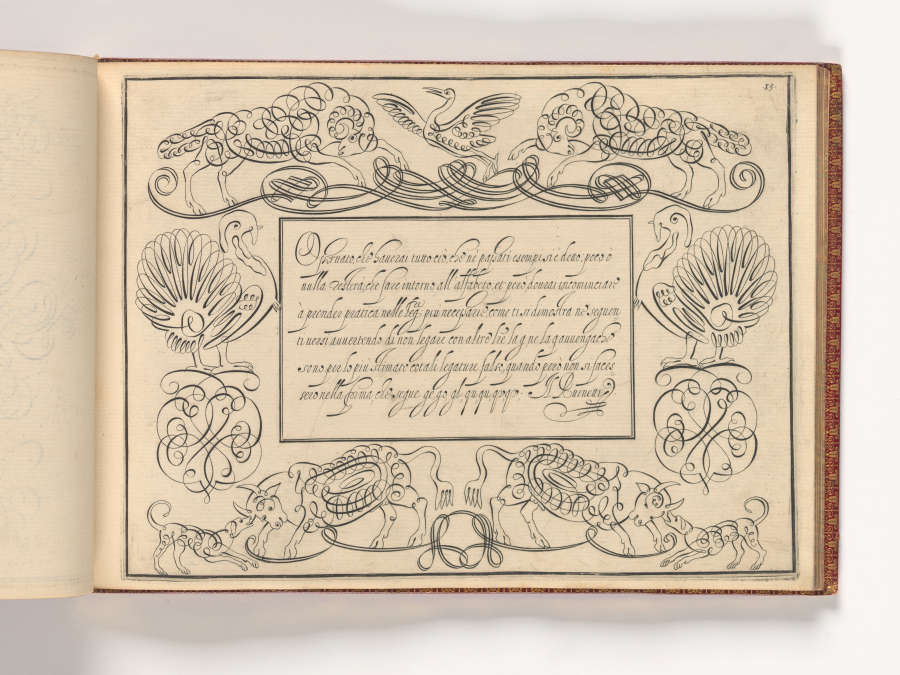 35.
Osservato, che haverai tutto ciò, che nè passati esempi si è detto, poco ò
nulla resterà, che fare intorno all' alfabeto, et però dovrai incominciare
à prender pratica nelle più necessarie come ti si dimostra ne seguen
ti versi avvertendo di non legare con altre lre la g ne la q
sono per lo più stimate cotali legature false, quando però non si faces
sero nella forma, che segue